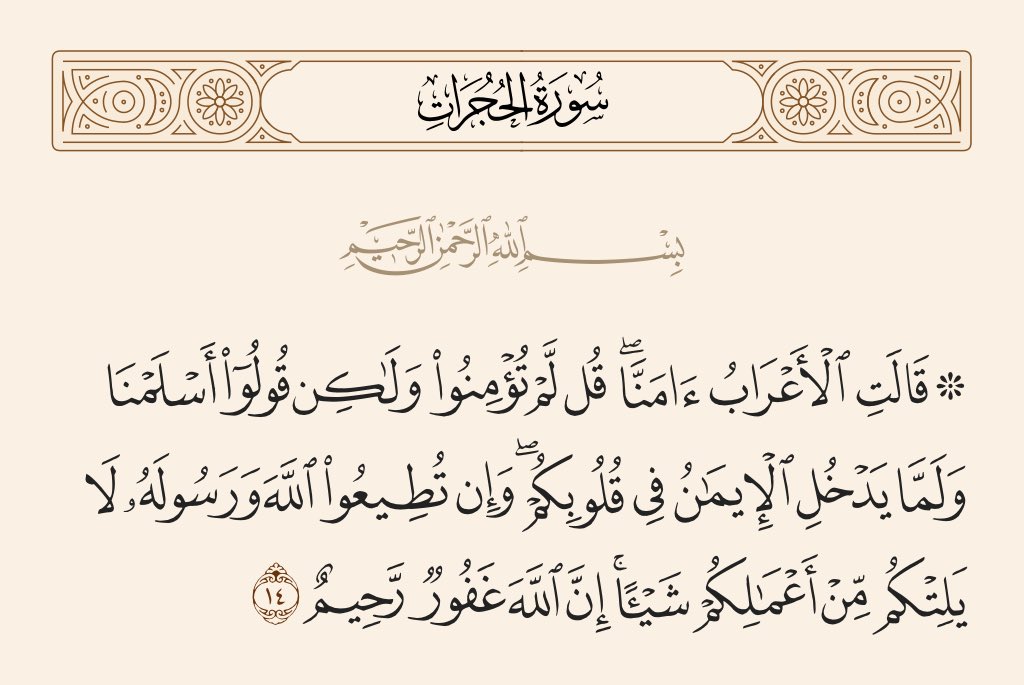 سُورَةُ الحُجُرَاتِ
بِسْمِ ٱللَّهِ ٱلرَّحْمَٰنِ ٱلرَّحِيمِ
۞ قَالَتِ ٱلْأَعْرَابُ ءَامَنَّاۖ قُل لَّمْ تُؤْمِنُوا۟ وَلَٰكِن قُولُوٓا۟ أَسْلَمْنَا
وَلَمَّا يَدْخُلِ ٱلْإِيمَٰنُ فِى قُلُوبِكُمْۖ وَإِن تُطِيعُوا۟ ٱللَّهَ وَرَسُولَهُۥ لَا
يَلِتْكُم مِّنْ أَعْمَٰلِكُمْ شَيْـًٔاۚ إِنَّ ٱللَّهَ غَفُورٌ رَّحِيمٌ ١٤